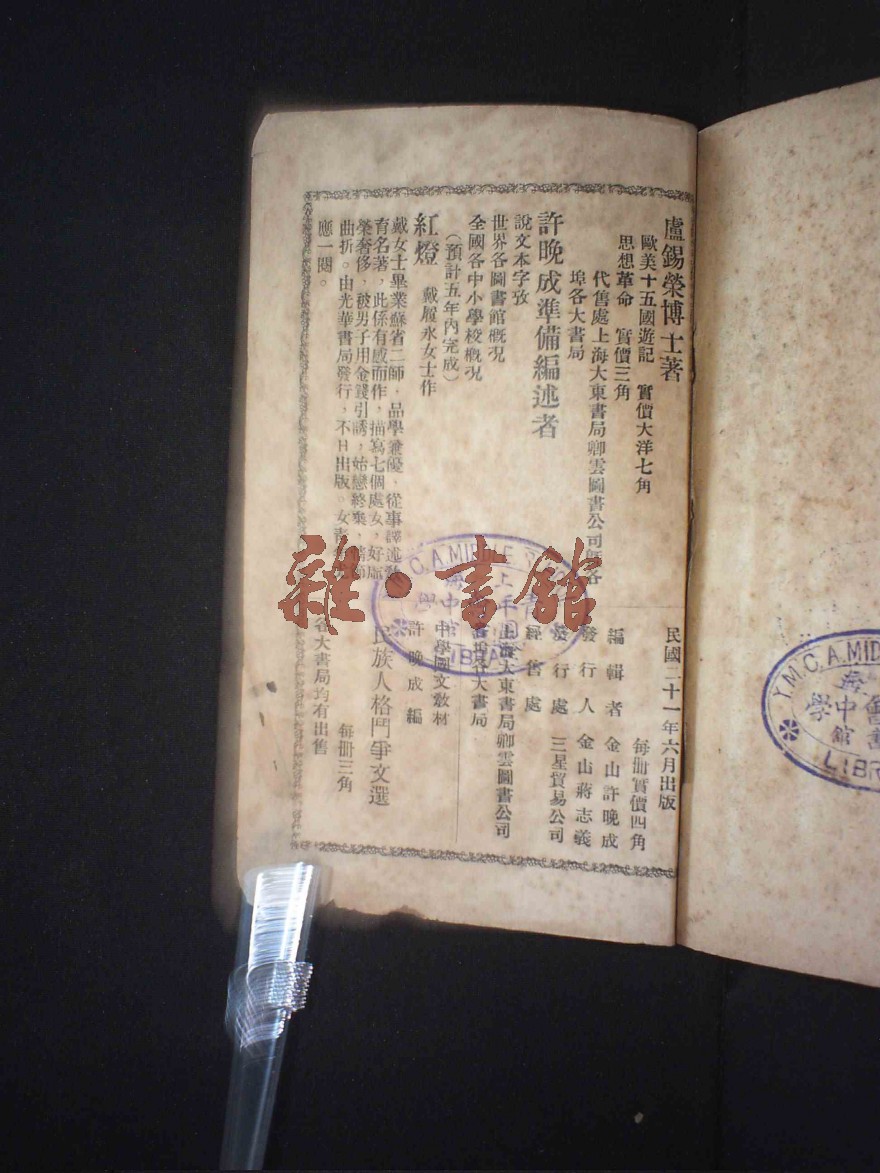 盧錫榮博士著
歐美十五國遊記 實價大洋七角
思想革命 實價三角
代售處上海大東書局卿雲圖書公司曁各
埠各大書局
許晚成準備編述者
說文本字攷
世界各圖書館概况
全國各中小學校概况
(預計五年內完成)
紅燈 戴履永女士作
戴女士畢業蘇省二師，品學兼優，從事譯述敎
育名著，此係有感而作，描寫七個處女，好虛
榮奢侈，被男子用金錢引誘，始戀終棄，
曲折。由光華書局發行，不日出版。女
應一閱。
民國二十一年六月出版
每冊實價四角
編輯者 金山許晚成
發行人 金山蔣志義
發行處 三星貿易公司
經售處
上海大東書局卿雲圖書公司
各埠各大書局
中學國文敎材
許晚成編
民族人格鬥爭文選
每冊三角
各大書局均有出售
雜·書館
C.A. MIDDLE
LIBRA
Y.M.C.A. MIDD
LIBR